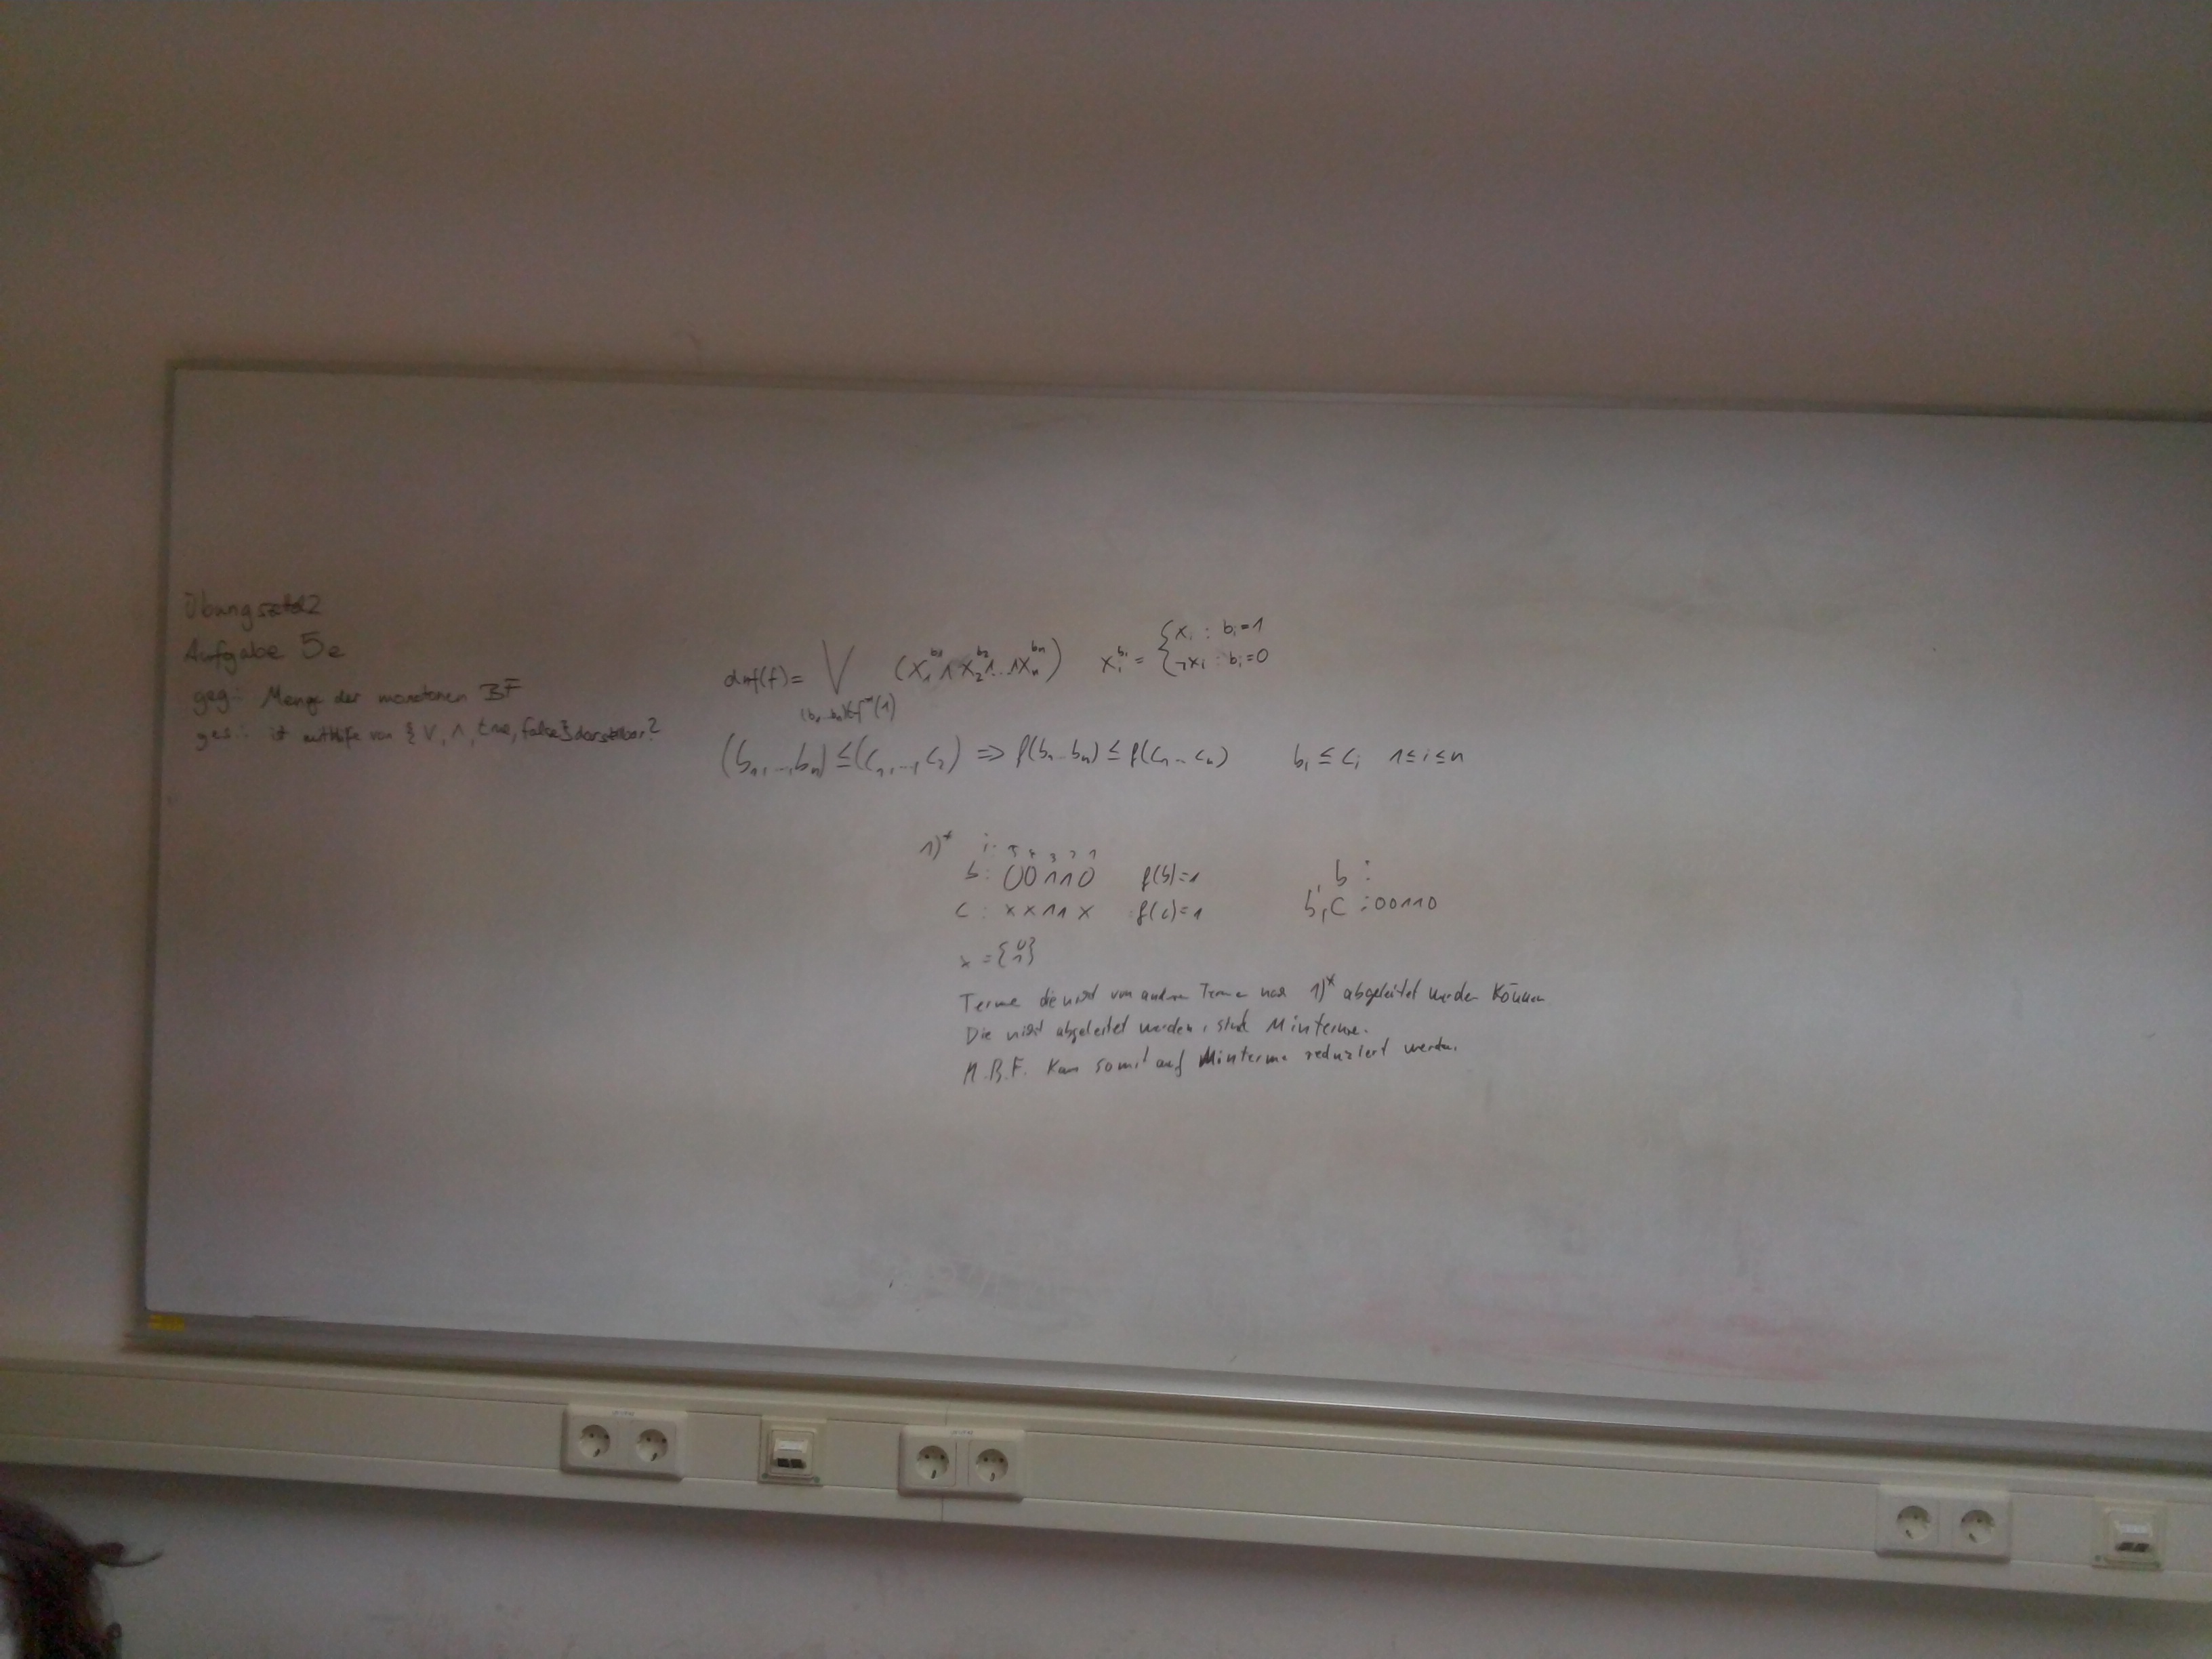 Übungszettel 2
Aufgabe 5e
geg.: Menge der monotonen BF
ges.: ist mithilfe von {∨, ∧, true, false} darstellbar?
dnf(f) = ⋁ (x₁^b₁ ∧ x₂^b₂ ∧ ... ∧ xₙ^bₙ) xᵢ^bᵢ = { xᵢ : bᵢ=1
¬xᵢ : bᵢ=0
(b₁...bₙ)∈f⁻¹(1)
(b₁,...,bₙ) ≤ (c₁,...,c₂) ⇒ f(b₁...bₙ) ≤ f(c₁...cₙ) bᵢ ≤ cᵢ 1≤i≤n
1)* i: 5 4 3 2 1
b: 00110 f(b)=1 b :
c: xx11x f(c)=1 b,c : 00110
x = {0 1}
Terme die nicht von anderen Terme nach 1)* abgeleitet werden können
Die nicht abgeleitet werden, sind Minterme.
M.B.F. kann somit auf Minterme reduziert werden.